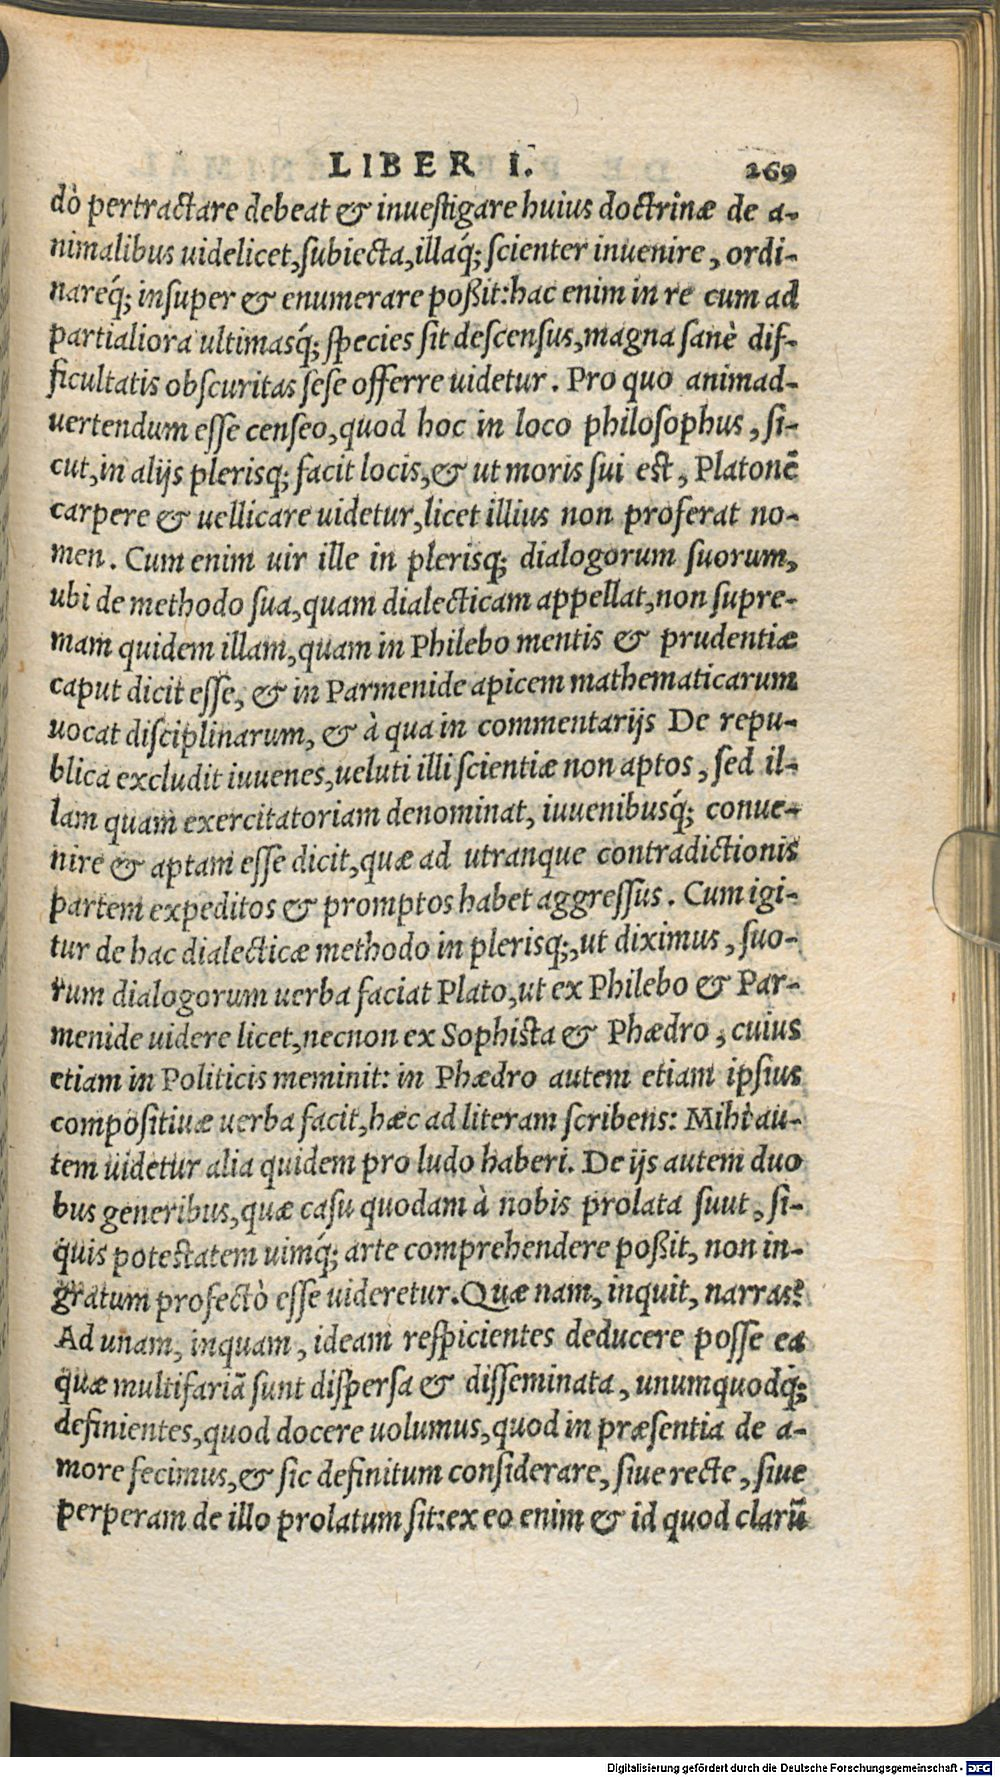 LIBER I. 269
dò pertractare debeat & inueſtigare huius doctrinæ de a-
nimalibus uidelicet, ſubiecta, illaq́; ſcienter inuenire, ordi-
nareq́; inſuper & enumerare poßit: hac enim in re cum ad
partialiora ultimasq́; ſpecies ſit deſcenſus, magna ſanè dif-
ficultatis obſcuritas ſeſe offerre uidetur. Pro quo animad-
uertendum eſſe cenſeo, quod hoc in loco philoſophus, ſi-
cut, in alijs plerisq; facit locis, & ut moris ſui est, Platonē
carpere & uellicare uidetur, licet illius non proferat no-
men. Cum enim uir ille in plerisq; dialogorum ſuorum,
ubi de methodo ſua, quam dialecticam appellat, non ſupre-
mam quidem illam, quam in Philebo mentis & prudentiæ
caput dicit eſſe, & in Parmenide apicem mathematicarum
uocat diſciplinarum, & à qua in commentarijs De repu-
blica excludit iuuenes, ueluti illi ſcientiæ non aptos, ſed il-
lam quam exercitatoriam denominat, iuuenibusq́; conue-
nire & aptam eſſe dicit, quæ ad utranque contradictionis
partem expeditos & promptos habet aggreſſus. Cum igi-
tur de hac dialecticæ methodo in plerisq;, ut diximus, ſuo-
rum dialogorum uerba faciat Plato, ut ex Philebo & Par-
menide uidere licet, necnon ex Sophista & Phædro, cuius
etiam in Politicis meminit: in Phædro autem etiam ipſius
compoſitiuæ uerba facit, hæc ad literam ſcribens: Mihi au-
tem uidetur alia quidem pro ludo haberi. De ijs autem duo
bus generibus, quæ caſu quodam à nobis prolata ſuut, ſi-
quis potestatem uimq́; arte comprehendere poßit, non in-
gratum profectò eſſe uideretur. Quæ nam, inquit, narras?
Ad unam, inquam, ideam reſpicientes deducere poſſe ea
quæ multifariā ſunt diſperſa & diſſeminata, unumquodq;
definientes, quod docere uolumus, quod in præſentia de a-
more fecimus, & ſic definitum conſiderare, ſiue recte, ſiue
perperam de illo prolatum ſit: ex eo enim & id quod clarū
Digitalisierung gefördert durch die Deutsche Forschungsgemeinschaft - DFG